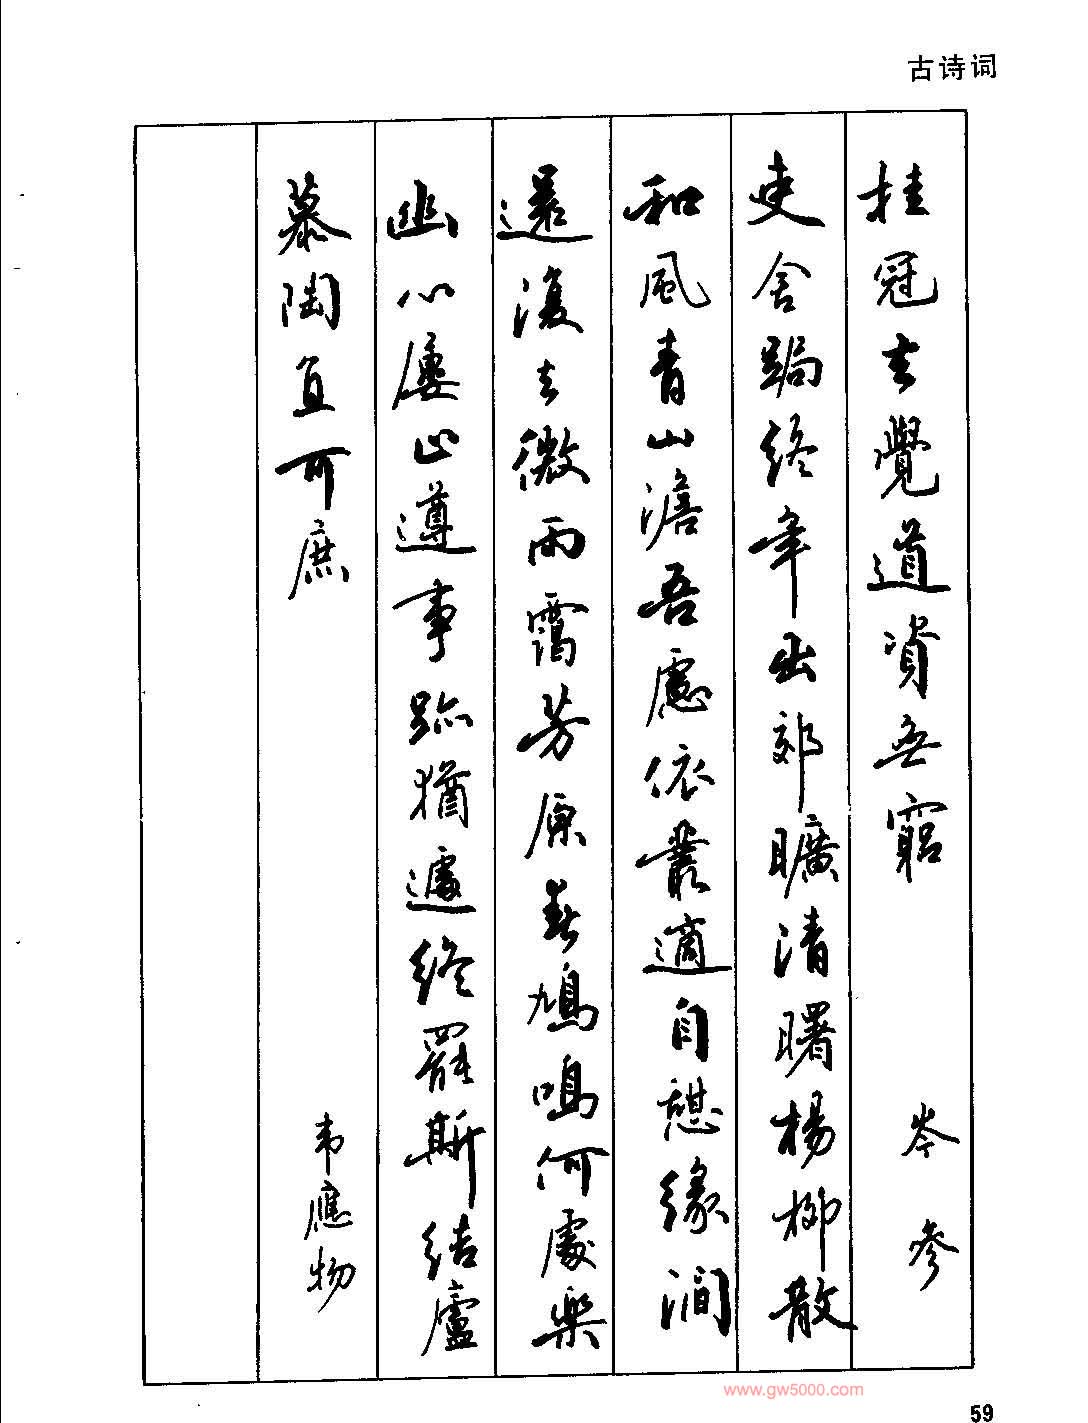 古诗词
挂冠去覺道資无窮 岑參
吏舍跼终年出郊曠清曙楊柳散
和風青山澹吾慮依叢適自憩緣澗
還復去微雨靄芳原春鳩鳴何處樂
幽心屢止遵事跡猶遽终罷斯结廬
慕陶直可庶 韦應物
www.gw5000.com
59